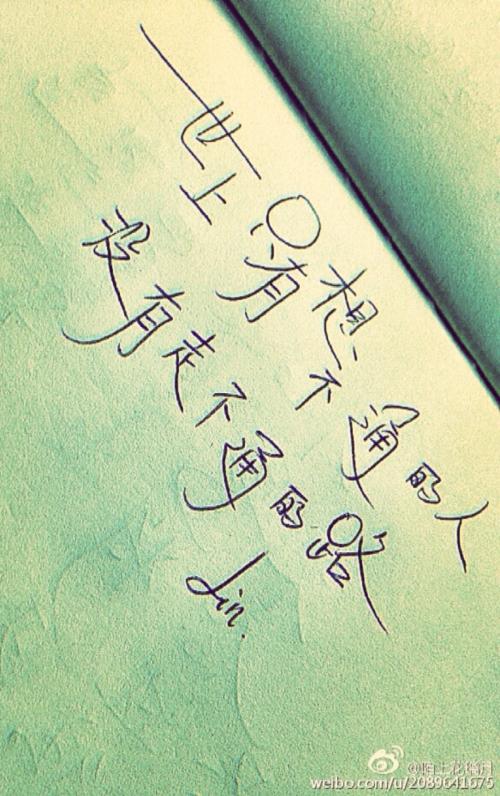 世上只有想不通的人
没有走不通的路
Lin.
weibo.com/u/2089641675